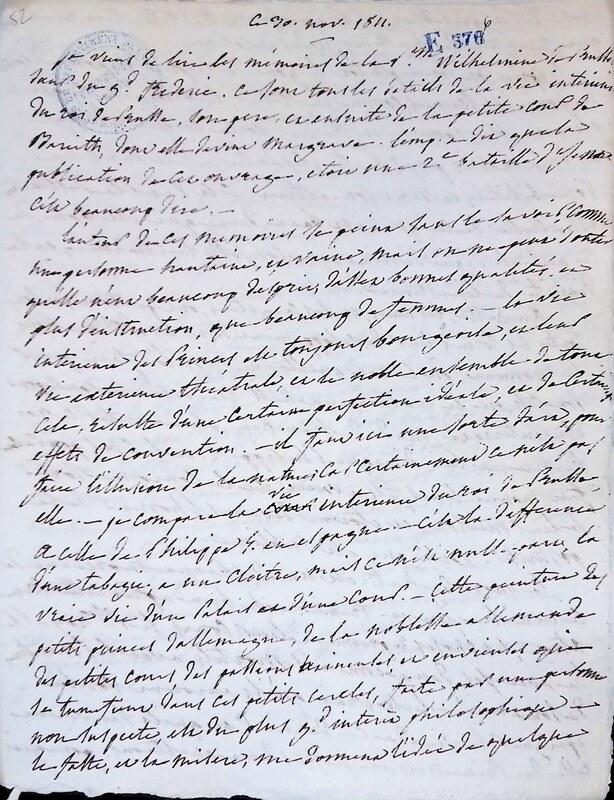 52
ce 30. nov. 1811.
E 378
6
je viens de lire les mémoires de la p.sse Wilhelmine de Prusse
soeur du g.d frédéric. ce sont tous les détails de la vie intérieure
du roi de Prusse, son père, et ensuite de la petite cour de
Bareith, dont elle devint margrave. l'emp. a dit que la
publication de cet ouvrage, étoit une 2.e bataille d'Jena
c'est beaucoup dire. —
l'auteur de ces mémoires se peint sans le savoir comme
une personne hautaine, et vaine, mais on ne peut douter
qu'elle n'eut beaucoup d'esprit, d'assez bonnes qualités, et
plus d'instruction, que beaucoup de femmes. — la vie
intérieure des Princes est toujours bourgeoise, et leur
vie extérieure théatrale, et le noble ensemble de tout
cela, résulte d'une certaine perfection idéale, et de certains
effets de convention. — il faut ici une sorte d'art, pour
faire l'illusion de la nature, car certainement ce n'est pas
elle. — je compare la vie intérieure du roi de Prusse
a celle de Philippe 5. en espagne — c'est la différence
d'une tabagie, a un cloître, mais ce n'est nulle part, la
vraie vie d'un Palais et d'une cour. — cette peinture des
petits princes d'allemagne, de la noblesse allemande
des petites cours des passions haineuses et envieuses qui
se tourmentent dans ces petits cercles, faite par une personne
non suspecte, est du plus g.d intérêt philosophique —
le faste, et la misère, me donnent l'idée de quelque